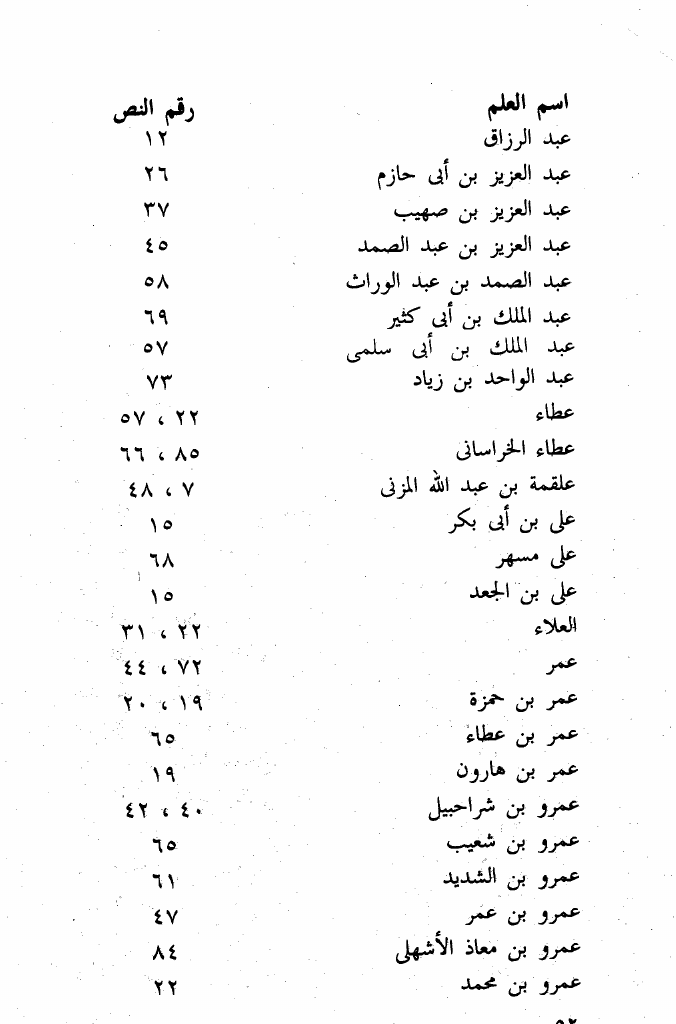 اسم العلم رقم النص
عبد الرزاق ١٢
عبد العزيز بن أبى حازم ٢٦
عبد العزيز بن صهيب ٣٧
عبد العزيز بن عبد الصمد ٤٥
عبد الصمد بن عبد الوراث ٥٨
عبد الملك بن أبى كثير ٦٩
عبد الملك بن أبى سلمى ٥٧
عبد الواحد بن زياد ٧٣
عطاء ٢٢ ، ٥٧
عطاء الخراسانى ٨٥ ، ٦٦
علقمة بن عبد الله المزنى ٧ ، ٤٨
على بن أبى بكر ١٥
على مسهر ٦٨
على بن الجعد ١٥
العلاء ٢٢ ، ٣١
عمر ٧٢ ، ٤٤
عمر بن حمزة ١٩ ، ٢٠
عمر بن عطاء ٦٥
عمر بن هارون ١٩
عمرو بن شراحبيل ٤٠ ، ٤٢
عمرو بن شعيب ٦٥
عمرو بن الشديد ٦١
عمرو بن عمر ٤٧
عمرو بن معاذ الأشهلى ٨٤
عمرو بن محمد ٢٢